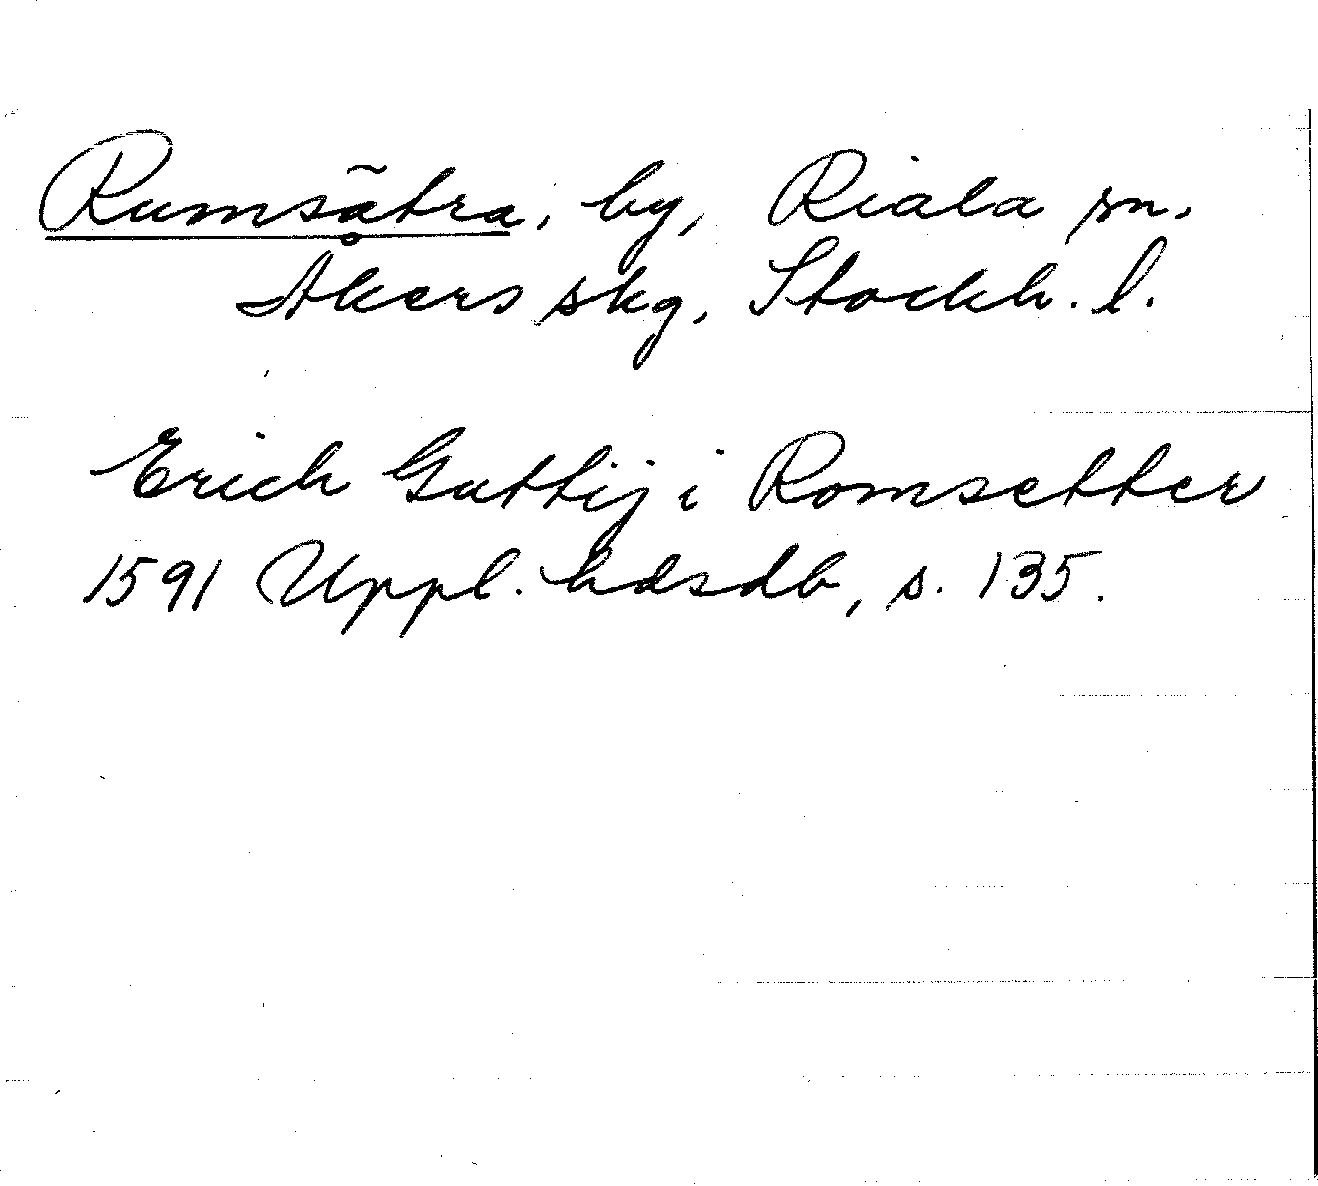 Rumsätra, by, Riala sn.
Åkers skg, Stockh. l.
Erich Guttij i Romsetter
1591 Uppl. hdsdb, s. 135.